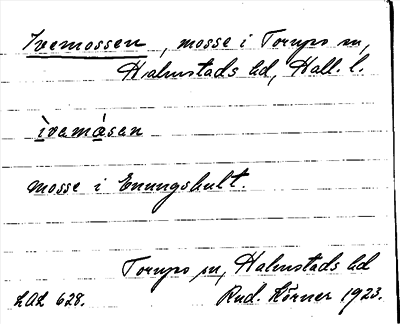 Ivemossen, mosse i Torups sn,
Halmstads hd, Hall. l.
ìvemåsen
mosse i Enungshult.
Torups sn, Halmstads hd
LAL 628. Rud. Körner 1923.